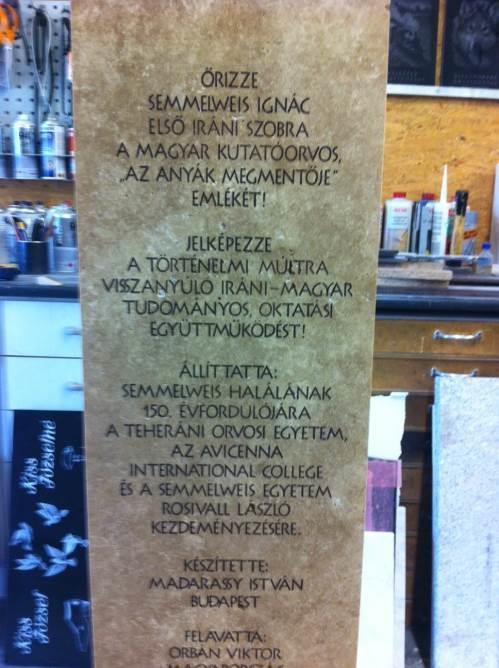 ŐRIZZE
SEMMELWEIS IGNÁC
ELSŐ IRÁNI SZOBRA
A MAGYAR KUTATÓORVOS,
„AZ ANYÁK MEGMENTŐJE”
EMLÉKÉT!
JELKÉPEZZE
A TÖRTÉNELMI MÚLTRA
VISSZANYÚLÓ IRÁNI-MAGYAR
TUDOMÁNYOS, OKTATÁSI
EGYÜTTMŰKÖDÉST!
ÁLLÍTTATTA:
SEMMELWEIS HALÁLÁNAK
150. ÉVFORDULÓJÁRA
A TEHERÁNI ORVOSI EGYETEM,
AZ AVICENNA
INTERNATIONAL COLLEGE
ÉS A SEMMELWEIS EGYETEM
ROSIVALL LÁSZLÓ
KEZDEMÉNYEZÉSÉRE.
KÉSZÍTETTE:
MADARASSY ISTVÁN
BUDAPEST
FELAVATTA:
ORBÁN VIKTOR
MAGYARORSZÁG
Kiss Józsefné
Kiss József